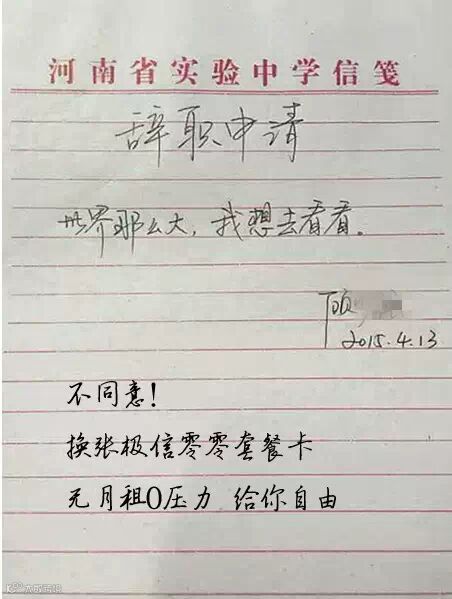 河南省实验中学信笺
辞职申请
世界那么大，我想去看看。
顾
2015.4.13
不同意！
换张极信零零套餐卡
无月租0压力 给你自由